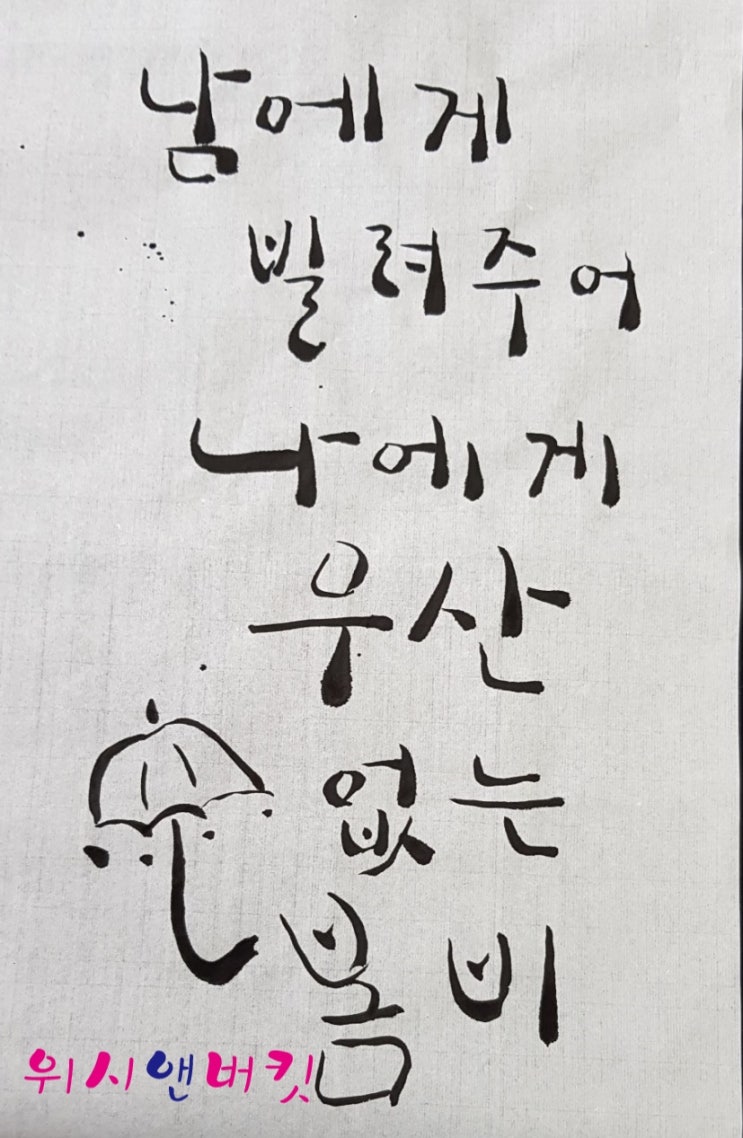 남에게
빌려주어
나에게
우산
없는
봄비
위시앤버킷